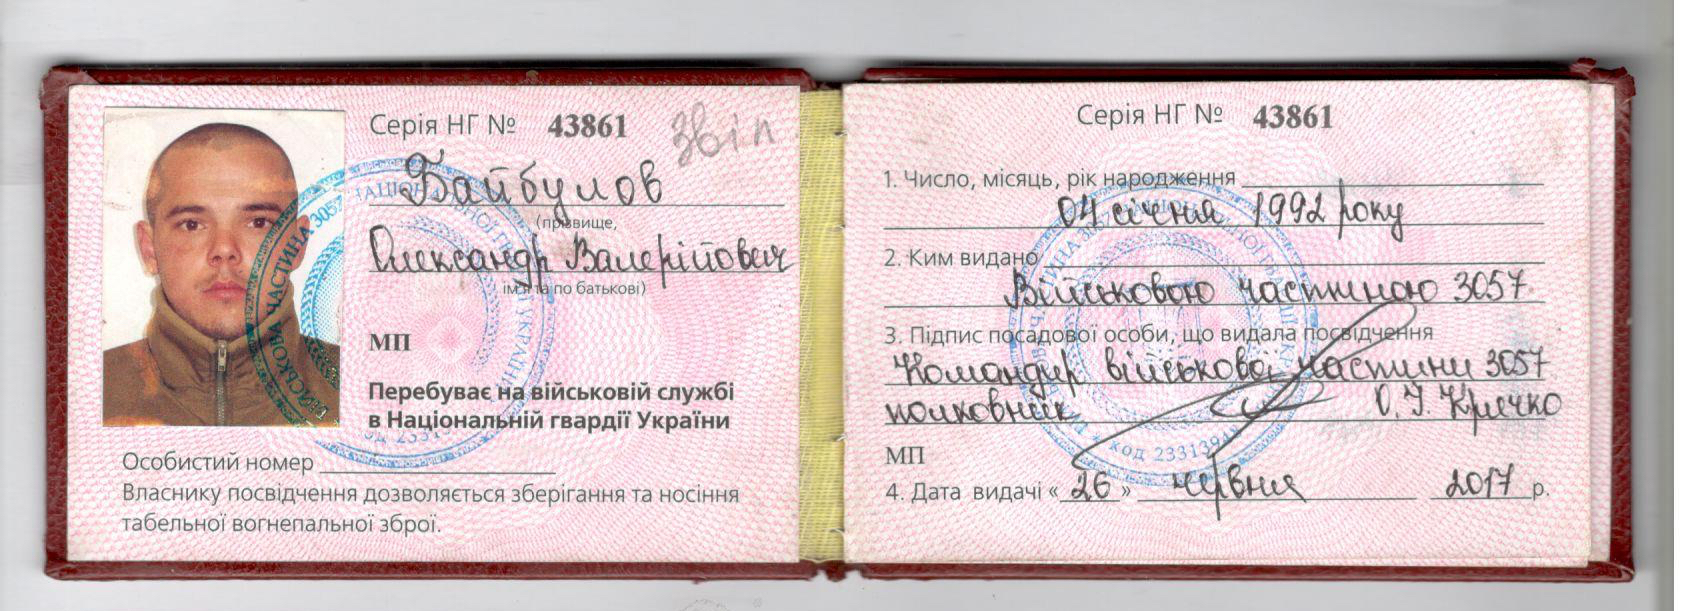 Серія НГ № 43861
Звіл
Байбулов
(прізвище,
Олександр Валерійович
ім'я та по батькові)
МП
Перебуває на військовій службі
в Національній гвардії України
Особистий номер
Власнику посвідчення дозволяється зберігання та носіння
табельної вогнепальної зброї.
Серія НГ № 43861
1. Число, місяць, рік народження
04 січня 1992 року
2. Ким видано
Військовою частиною 3057
3. Підпис посадової особи, що видала посвідчення
Командир військової частини 3057
полковник О.І. Кричко
МП
4. Дата видачі « 26 » червня 2017 р.
ВІЙСЬКОВА ЧАСТИНА 3057